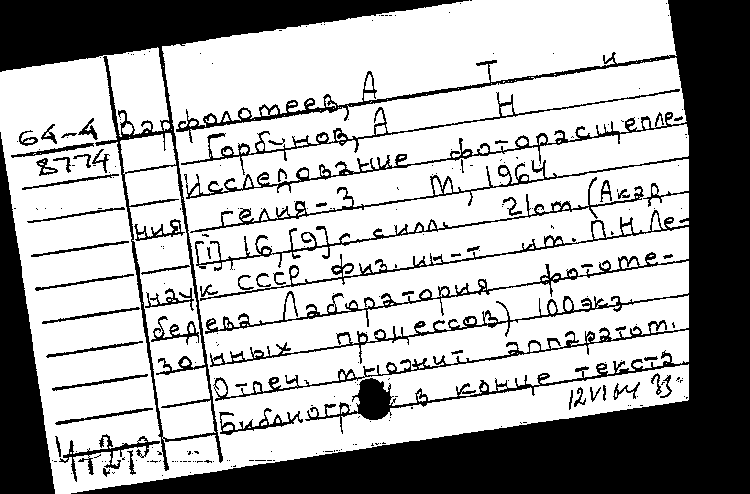 64-4
8774
Варфоломеев, А Т и
Горбунов, А Н
Исследование фоторасщепле-
ния гелия-3. М., 1964.
[1], 16, [9] с. с илл. 21 см. (Акад.
наук СССР. Физ. ин-т им. П.Н.Ле-
бедева. Лаборатория фотоме-
зонных процессов) 100 экз.
Отпеч. множит. аппаратом.
Библиогр. в конце текста.